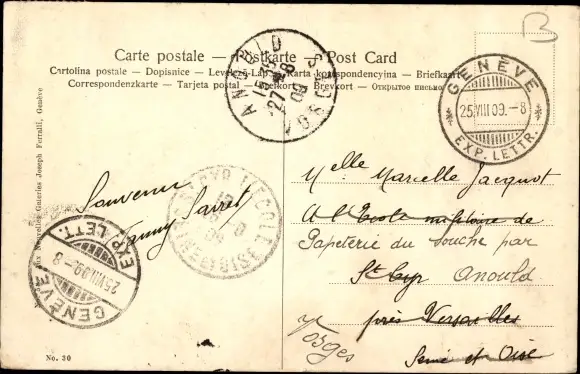 B
Carte postale — Postkarte — Post Card
Cartolina postale — Dopisnice — Levelező-Lap — Karta korespondencyjna — Briefkaart
Correspondenzkarte — Tarjeta postal — Brefkort — Brevkort — Открытое письмо
ANOULD
27 -8 09
VOSGES
GENÈVE
25.VIII 09.-8
EXP. LETTR.
Souvenir
Fanny Sairet
EXP. LETT.
25.VIII 09.-8
GENÈVE
Melle Marcelle Jacquot
A l'Ecole militaire de
Papeterie du souche par
St Cyr Anould
près Versailles
Vosges
Seine et Oise
Nouvelles Galeries Joseph Ferralli, Genève
No. 30